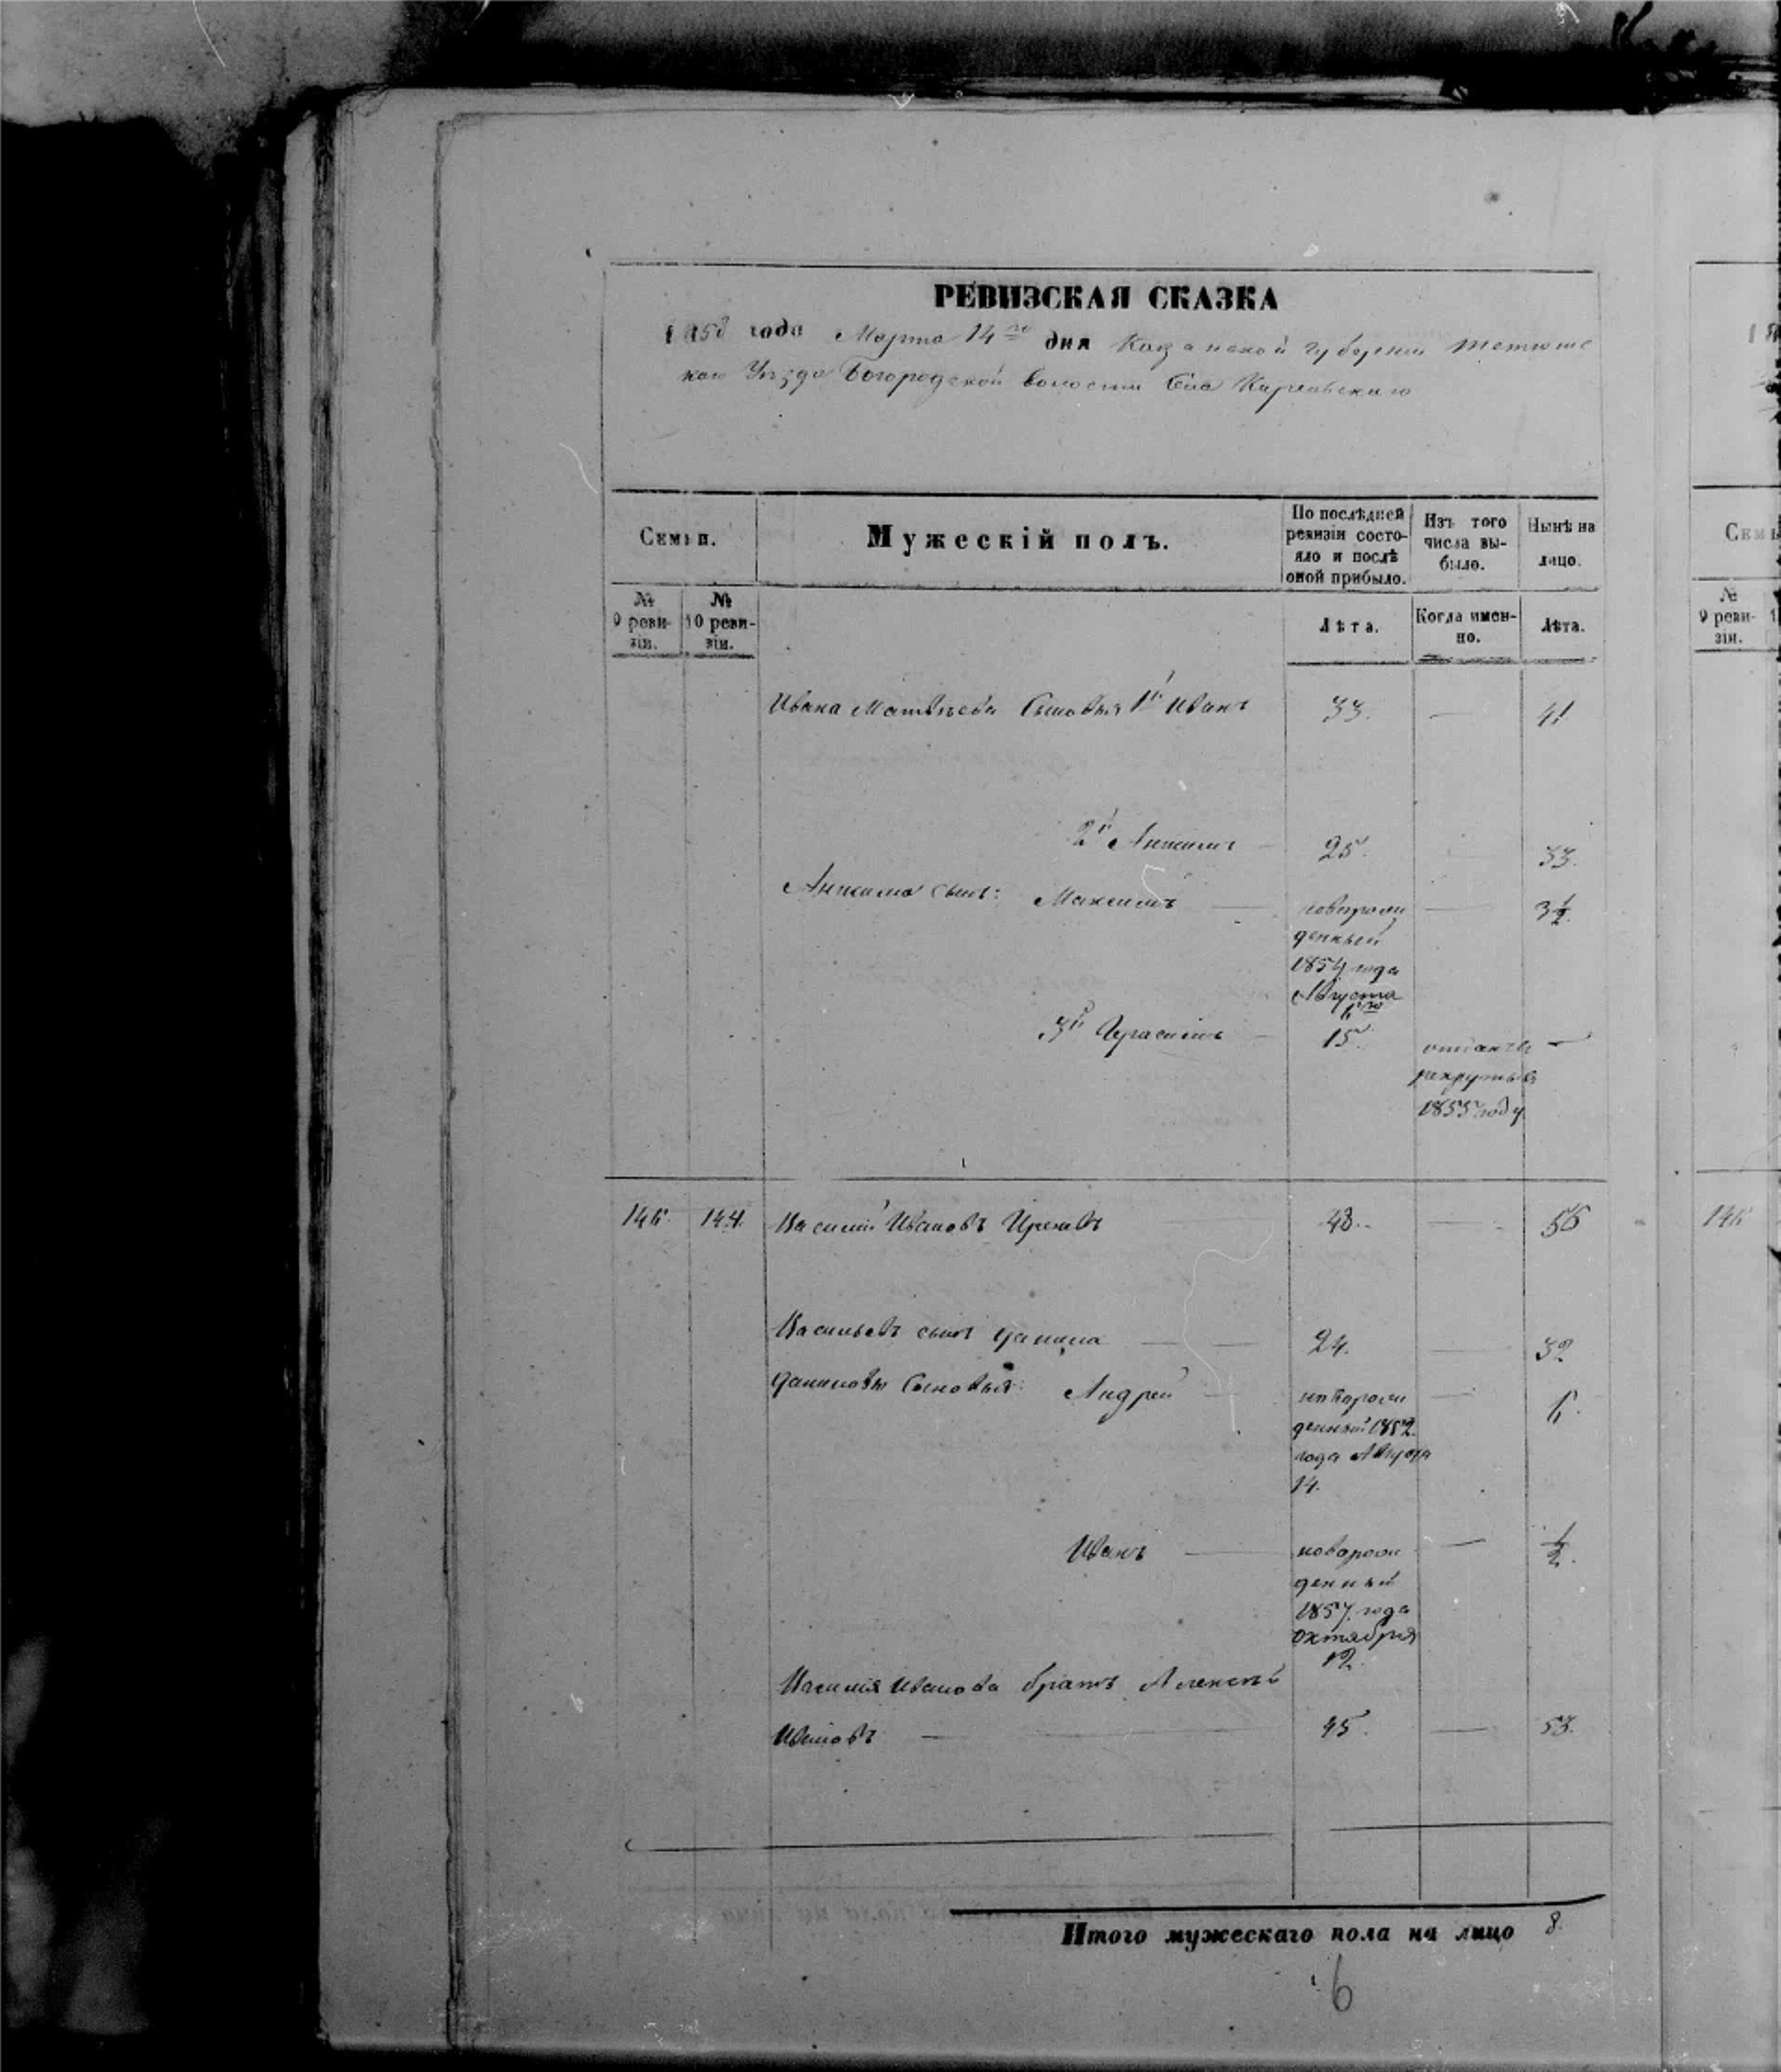 РЕВИЗСКАЯ СКАЗКА
1858 года Марта 14го дня Казанской губернии Тетюшс
каго Уезда Богородской волости Села
Семьи.
Мужескій полъ.
По послѣдней ревизіи состояло и послѣ оной прибыло.
Изъ того числа выбыло.
Нынѣ на лицо.
№ 9 ревизіи.
№ 10 ревизіи.
Лѣта.
Когда именно.
Лѣта.
Ивана Матвѣева Сыновья 1й Иванъ 33. — 41
2й Анисимъ 25. 33.
Анисима сынъ: Максимъ — новорож — 3½.
денный
1854 года
Августа
3й Герасимъ 15. отданъ въ —
рекруты въ
1855 году
146. 144. Василій Ивановъ 48. — 56
Васильевъ сынъ Данила — 24. — 32
Даниловы Сыновья: Андрей — новорож — 6.
денный 1852.
года Августа
14.
Иванъ — новорож — ½.
денный
1857 года
октября
12.
Василія Иванова братъ Алексѣй
Ивановъ — 45. — 53.
Итого мужескаго пола на лицо 8.
6
Семь
№ 9 ревизіи.
146